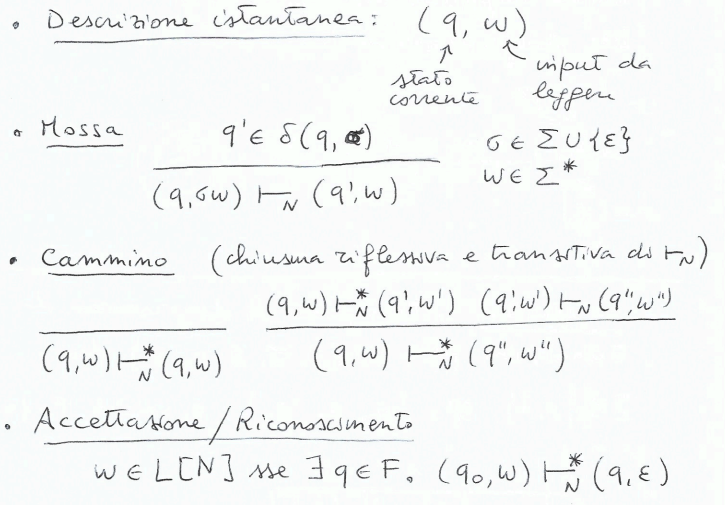 • Descrizione istantanea: (q, w)
↑ ↖ input da
stato leggere
corrente
• Mossa q' ∈ δ(q, σ) σ ∈ Σ ∪ {ε}
(q, σw) ⊢N (q', w) w ∈ Σ*
• Cammino (chiusura riflessiva e transitiva di ⊢N)
(q,w) ⊢*N (q',w') (q',w') ⊢N (q'',w'')
(q,w) ⊢*N (q,w) (q,w) ⊢*N (q'',w'')
• Accettazione / Riconoscimento
w ∈ L[N] sse ∃ q ∈ F. (q₀,w) ⊢*N (q,ε)